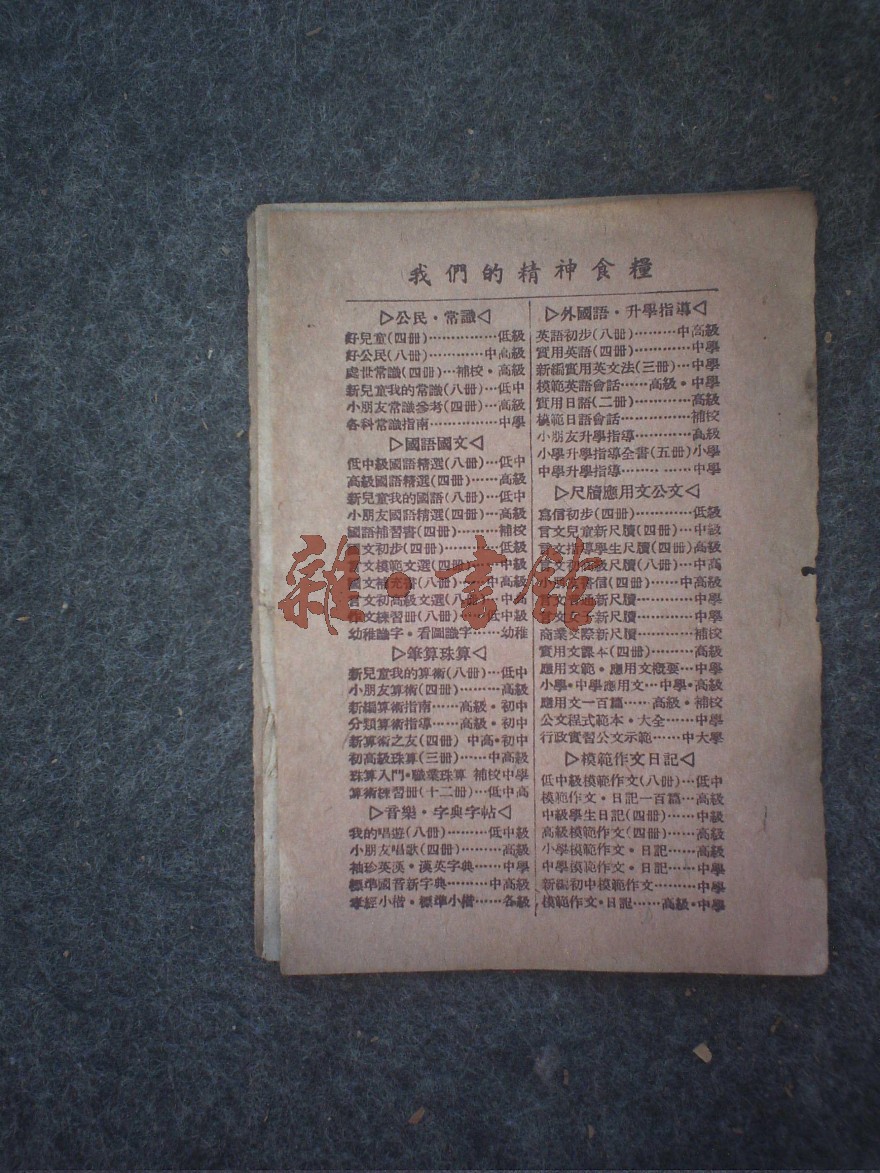 我們的精神食糧
▷公民・常識◁
好兒童(四冊)…………低級
好公民(八冊)…………中高級
處世常識(四冊)…補校・高級
新兒童我的常識(八冊)…低中
小朋友常識參考(四冊)…高級
各科常識指南…………中學
▷國語國文◁
低中級國語精選(八冊)…低中
高級國語精選(四冊)……高級
新兒童我的國語(八冊)…低中
小朋友國語精選(四冊)…高級
國語補習書(四冊)………補校
國文初步(四冊)…………低級
言文模範文選(四冊)……中級
國文補充書(八冊)……中高級
言文初高級文選(八冊)…中高
作文練習冊(八冊)……低中級
幼稚識字・看圖識字……幼稚
▷筆算珠算◁
新兒童我的算術(八冊)…低中
小朋友算術(四冊)………高級
新編算術指南……高級・初中
分類算術指導……高級・初中
新算術之友(四冊) 中高・初中
初高級珠算(三冊)……中高級
珠算入門・職業珠算 補校中學
算術練習冊(十二冊)…低中高
▷音樂・字典字帖◁
我的唱遊(八冊)………低中級
小朋友唱歌(四冊)………高級
袖珍英漢・漢英字典……中學
標準國音新字典………中高級
孝經小楷・標準小楷……各級
▷外國語・升學指導◁
英語初步(八冊)………中高級
實用英語(四冊)…………中學
新編實用英文法(三冊)…中學
模範英語會話……高級・中學
實用日語(二冊)…………高級
模範日語會話……………補校
小朋友升學指導…………高級
小學升學指導全書(五冊)小學
中學升學指導……………中學
▷尺牘應用文公文◁
寫信初步(四冊)…………低級
言文兒童新尺牘(四冊)…中級
言文指導學生尺牘(四冊)高級
言文初高級尺牘(八冊)…中高
小朋友書信(四冊)………中高
言文普通新尺牘…………中學
言文女子新尺牘…………中學
商業交際新尺牘…………補校
實用文課本(四冊)………高級
應用文範・應用文概要…中學
小學・中學應用文…中學・高級
應用文一百篇……高級・補校
公文程式範本・大全……中學
行政實習公文示範……中大學
▷模範作文日記◁
低中級模範作文(八冊)…低中
模範作文・日記一百篇…高級
中級學生日記(四冊)……中級
高級模範作文(四冊)……高級
小學模範作文・日記……高級
中學模範作文・日記……中學
新編初中模範作文………中學
模範作文・日記……高級・中學
雜・書館